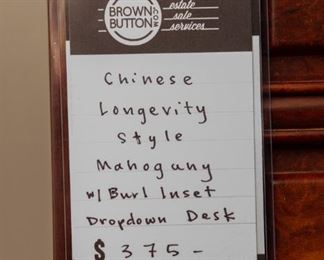 BROWN
BUTTON
.com
estate
sale
services
Chinese
Longevity
Style
Mahogany
w/ Burl Inset
Dropdown Desk
$ 375-